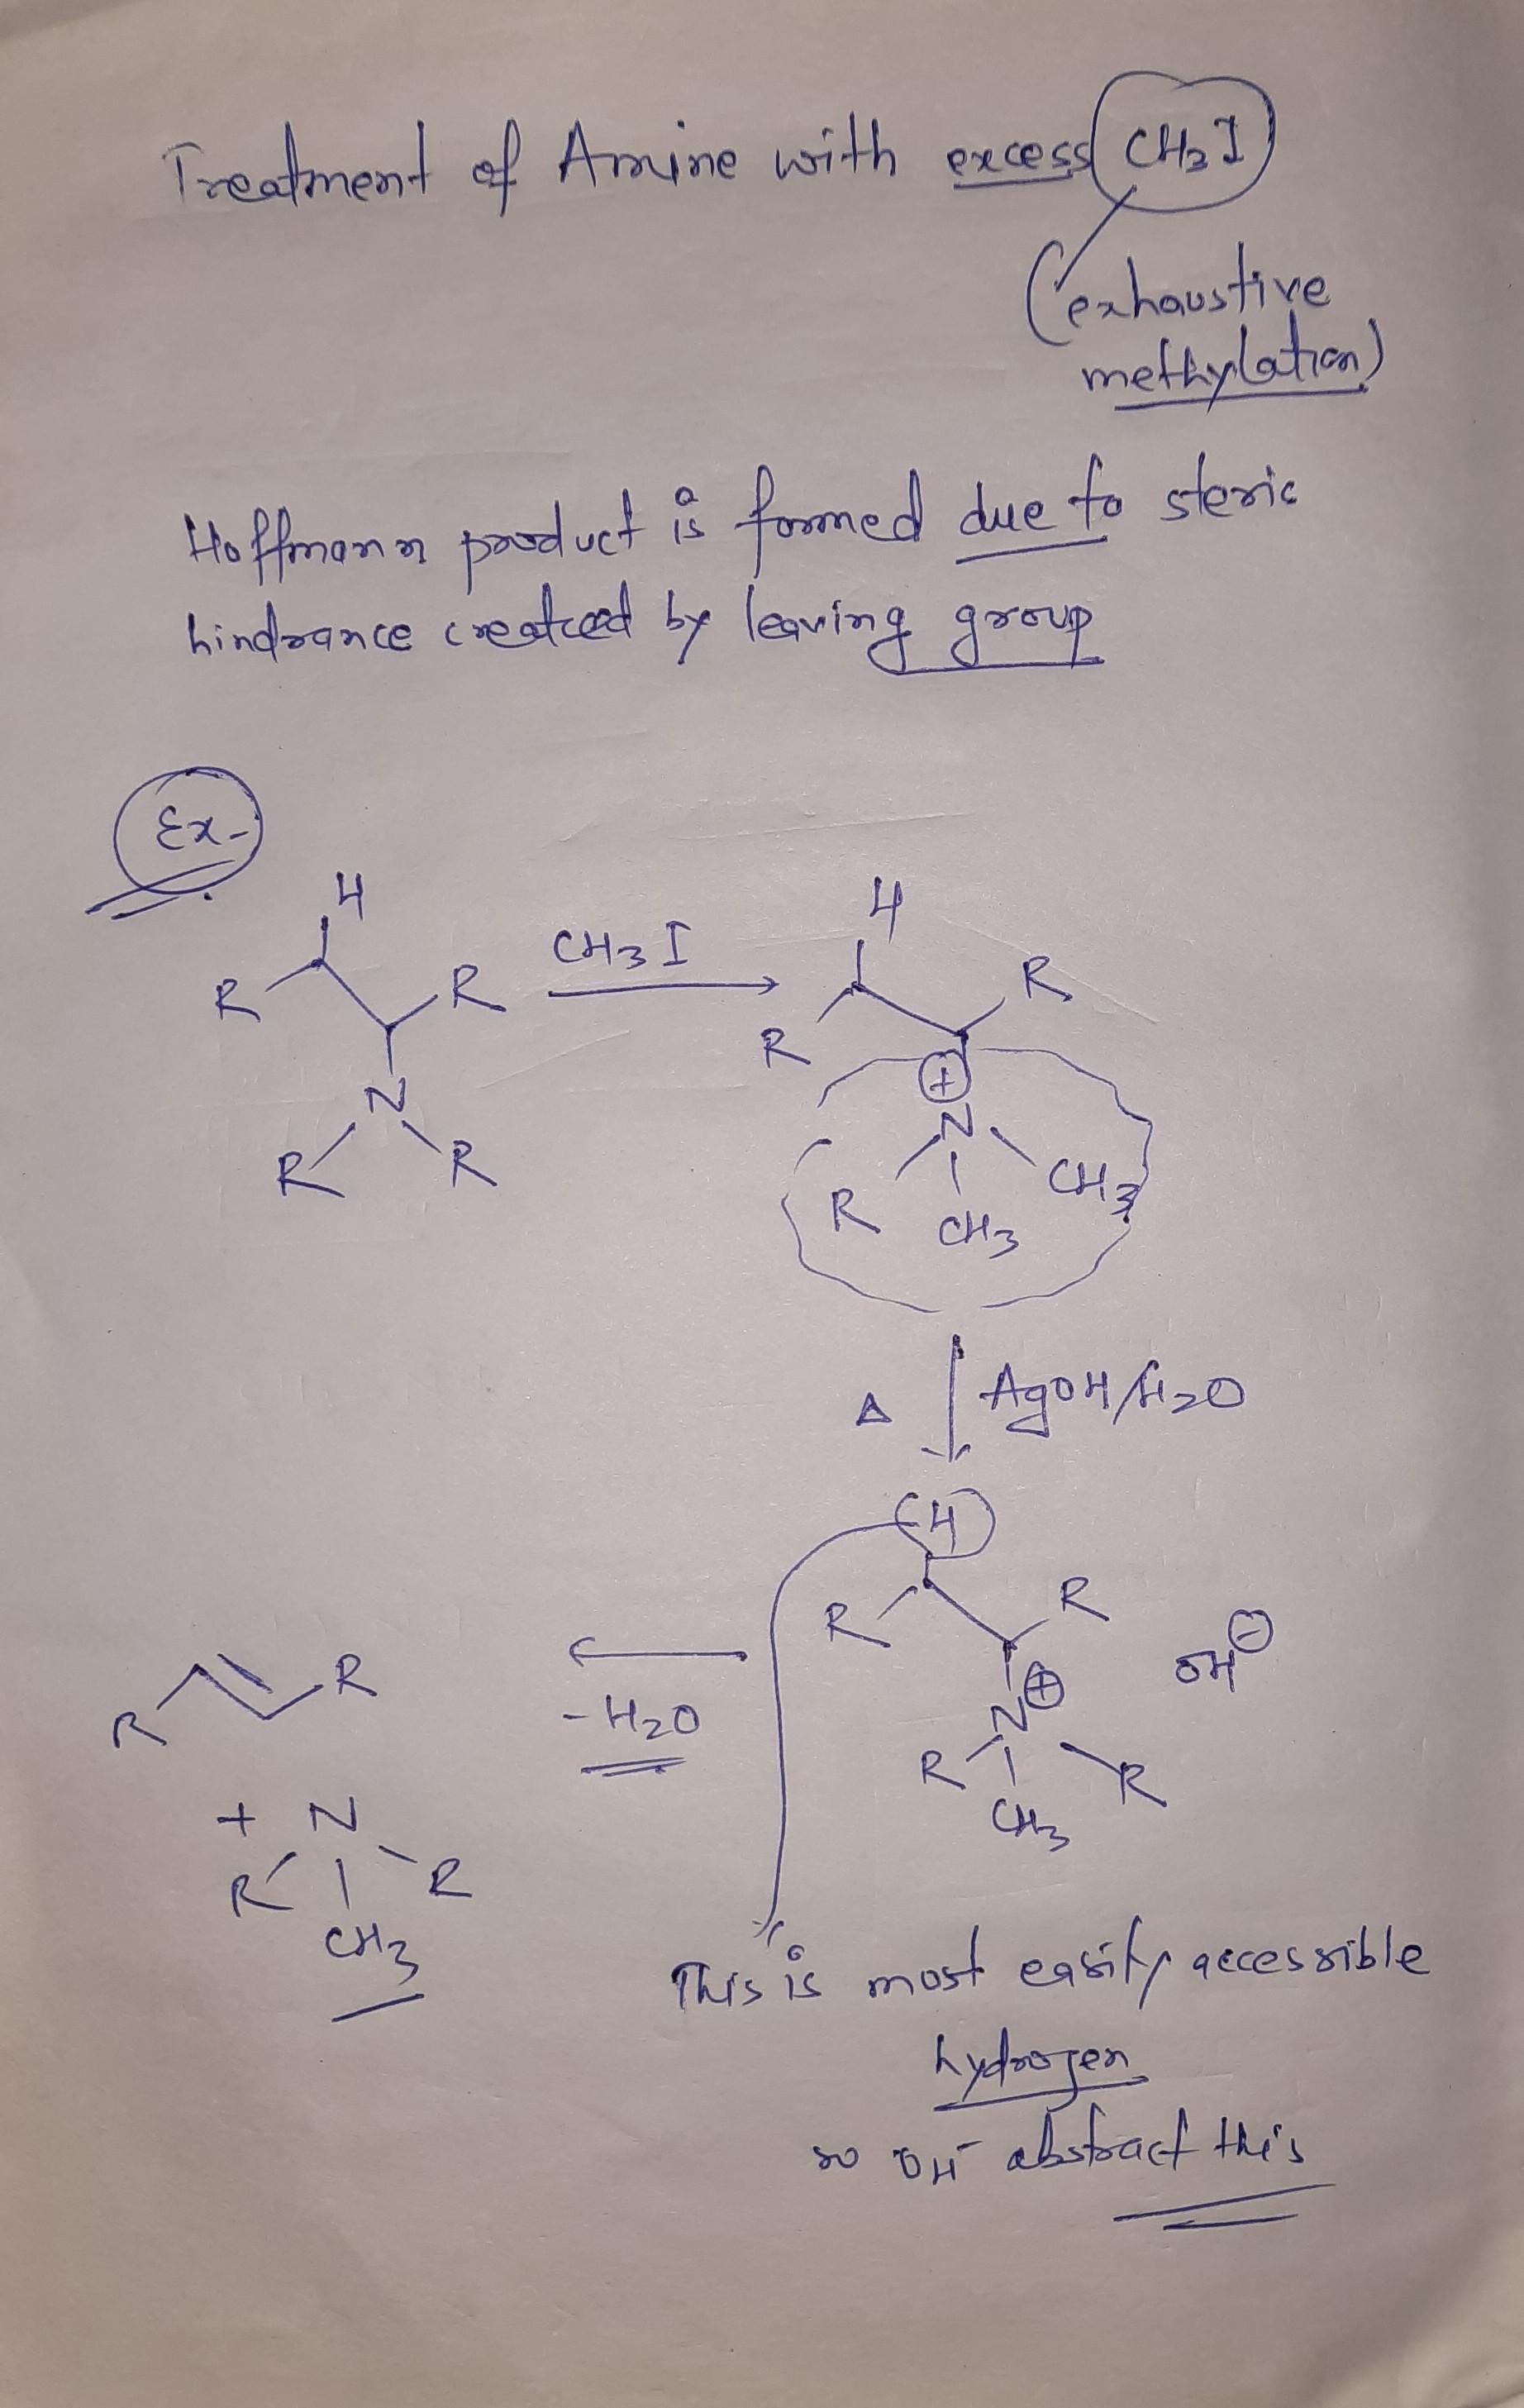 Treatment of Amine with excess CH3I
(exhaustive
methylation)
Hoffmann product is formed due to steric
hindrance created by leaving group
Ex-
H
R
R
N
R
R
CH3I
H
R
R
⊕
N
R
CH3
CH3
Δ
AgOH/H2O
H
R
R
⊕
N
R
R
CH3
OH⊖
-H2O
R
R
+ N
R
R
CH3
This is most easily accessible
hydrogen
so OH- abstract this